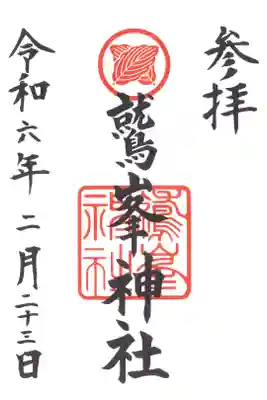 参拝
鷲峯神社
鷲峯
神社
令和六年二月二十三日